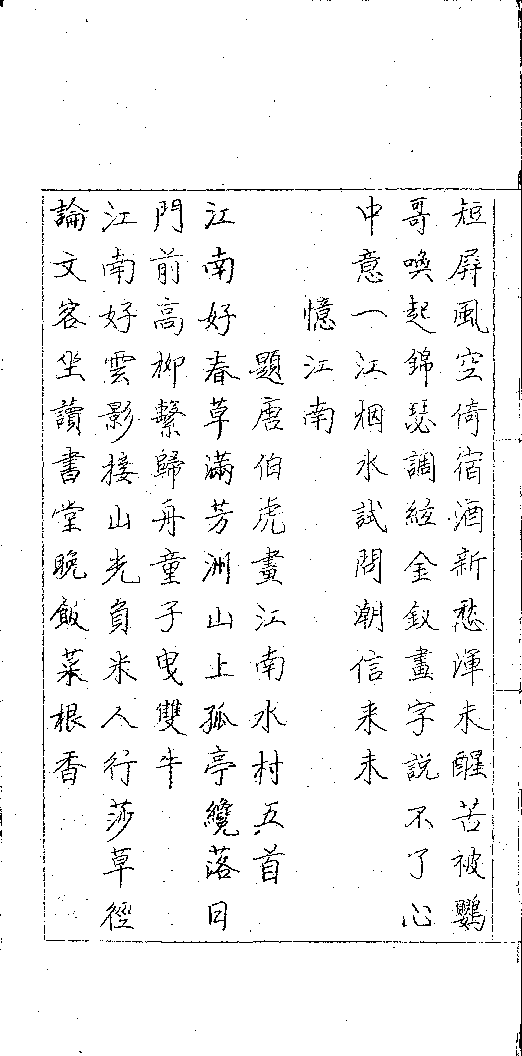 短屏風空倚宿酒新愁渾未醒苦被鸚
哥喚起錦瑟調絃金釵畫字説不了心
中意一江烟水試問潮信来未
憶江南
題唐伯虎畫江南水村五首
江南好春草滿芳洲山上孤亭纔落日
門前高柳繫歸舟童子曳雙牛
江南好雲影接山光負米人行莎草徑
論文客坐讀書堂晚飯菜根香